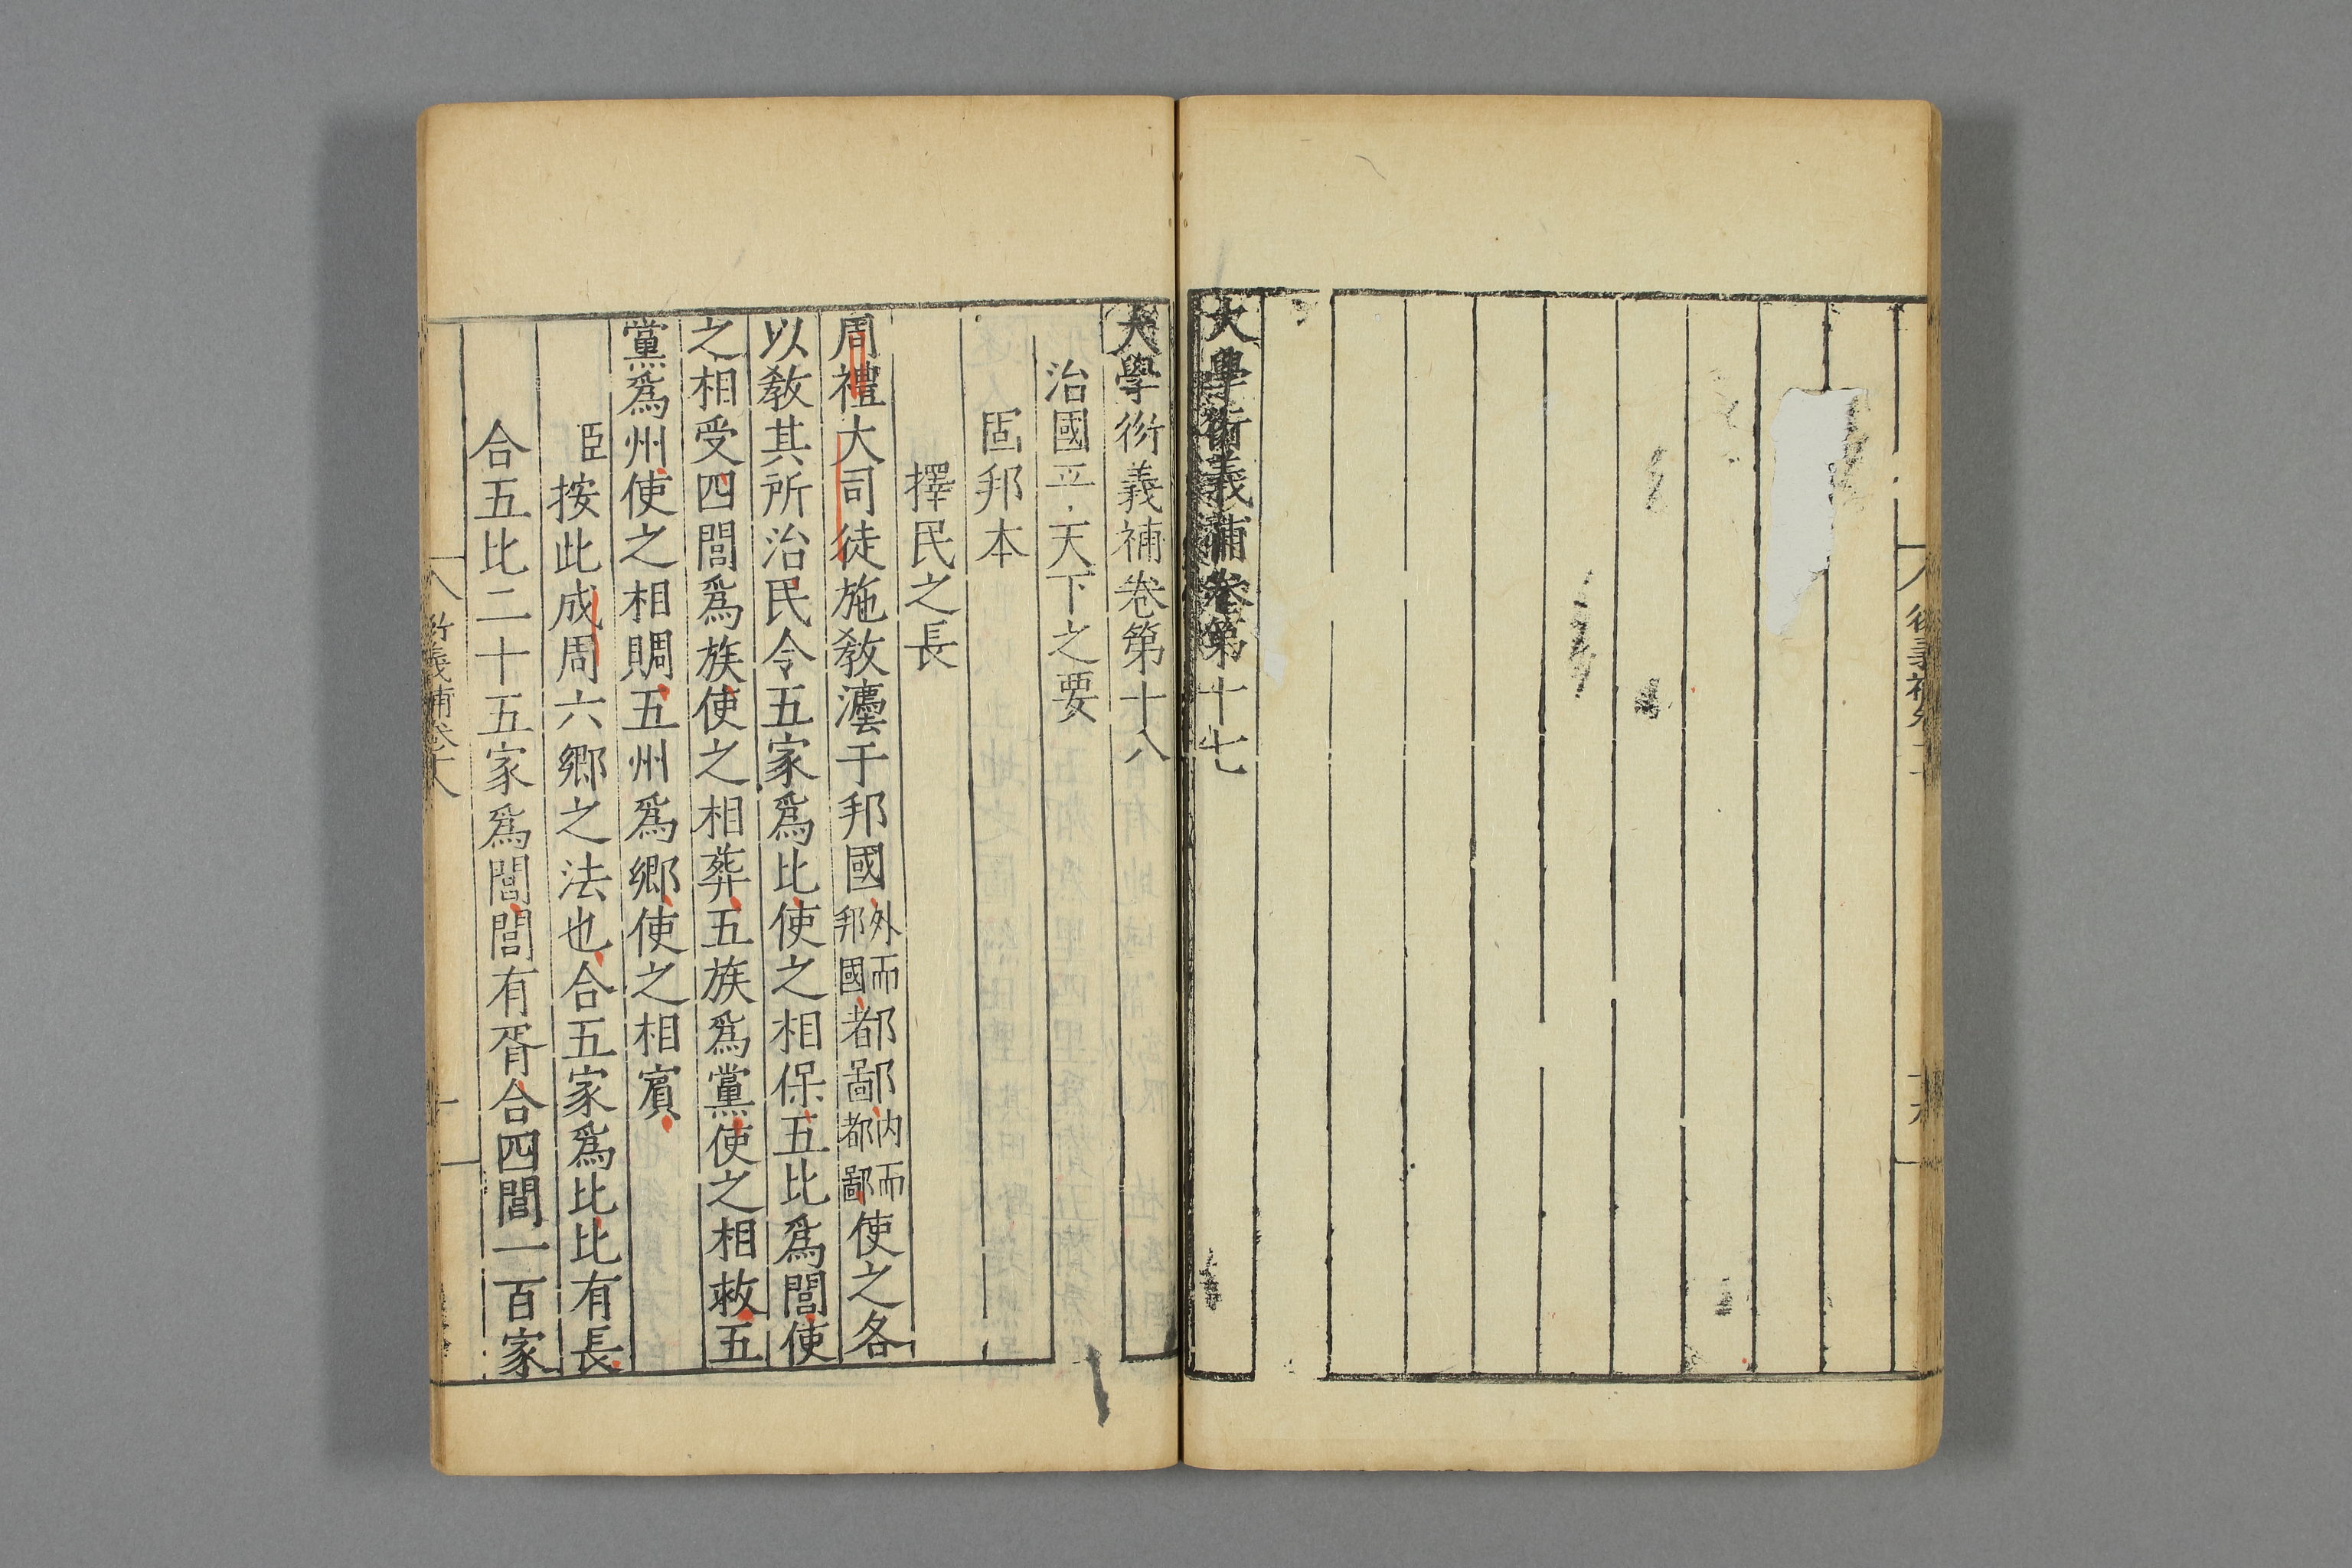 大學衍義補卷第十七
大學衍義補卷第十八
治國平天下之要
固邦本
擇民之長
周禮大司徒施敎灋于邦國外而邦國都鄙内而都鄙使之各
以敎其所治民令五家爲比使之相保五比爲閭使
之相受四閭爲族使之相葬五族爲黨使之相救五
黨爲州使之相賙五州爲鄉使之相賔
臣按此成周六鄉之法也合五家爲比比有長
合五比二十五家爲閭閭有胥合四閭一百家
衍義補卷十八